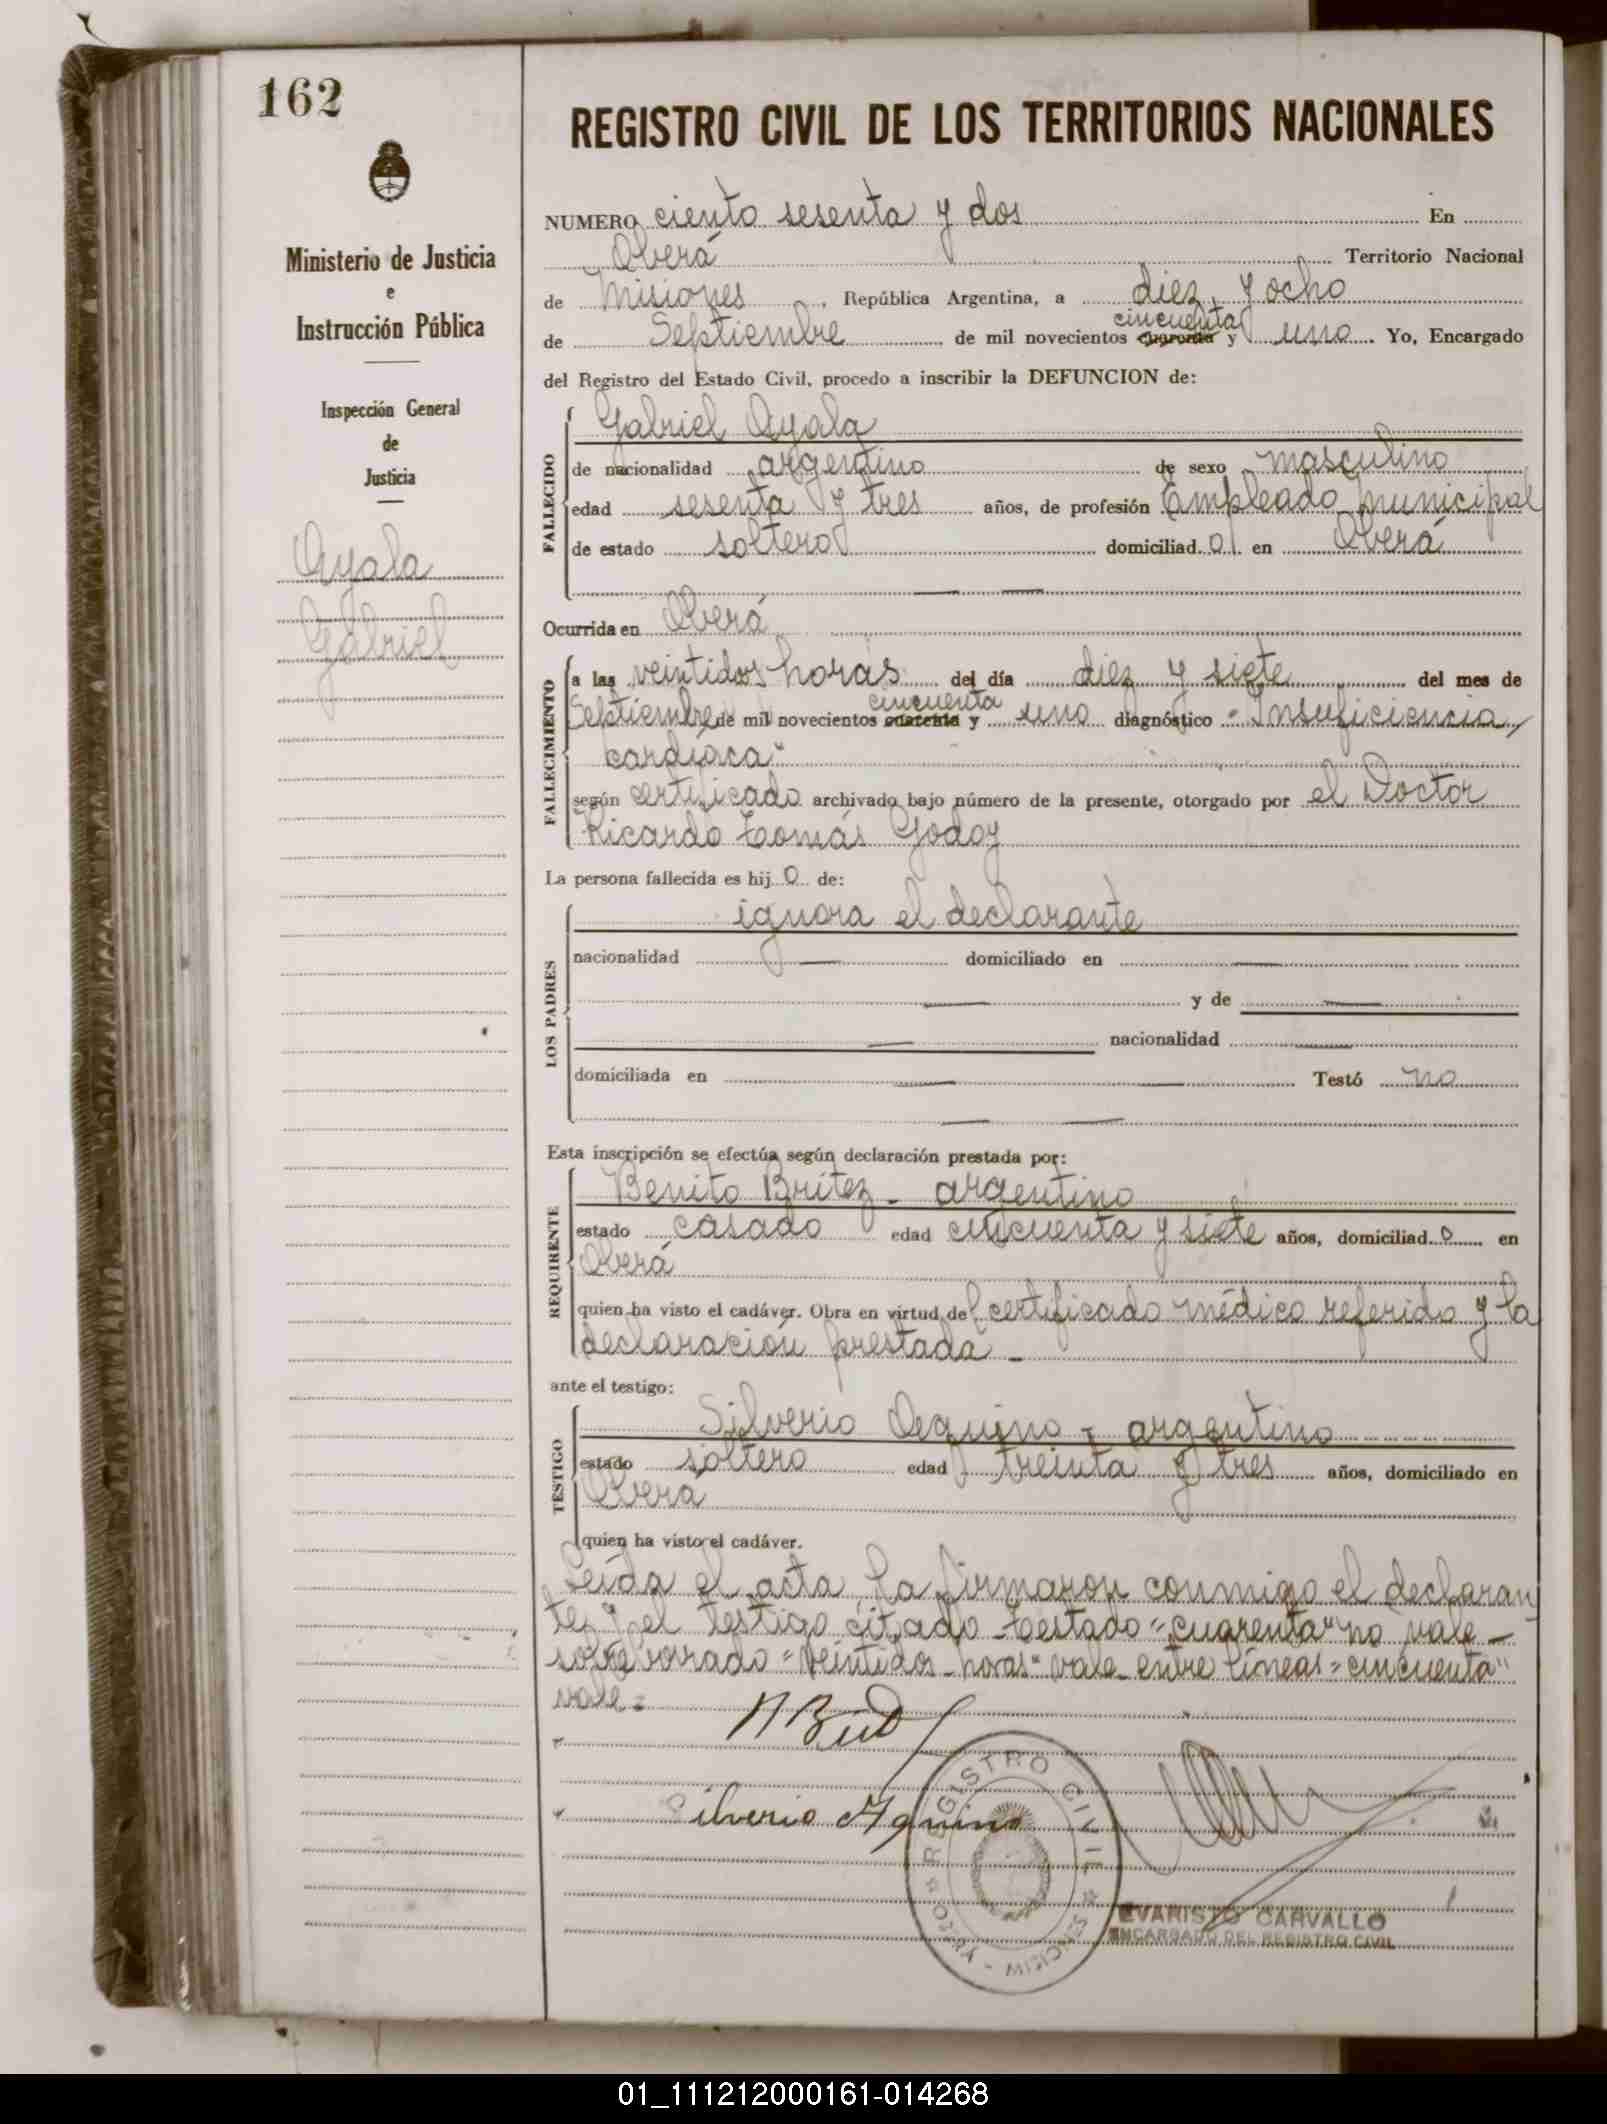 162
Ministerio de Justicia
e
Instrucción Pública
Inspección General
de
Justicia
Ayala
Gabriel
REGISTRO CIVIL DE LOS TERRITORIOS NACIONALES
NUMERO ciento sesenta y dos En
Oberá Territorio Nacional
de Misiones, República Argentina, a diez y ocho
cincuenta
de Septiembre de mil novecientos cuarenta y uno. Yo, Encargado
del Registro del Estado Civil, procedo a inscribir la DEFUNCION de:
FALLECIDO
Gabriel Ayala
de nacionalidad argentino de sexo masculino
edad sesenta y tres años, de profesión Empleado municipal
de estado soltero domiciliad o en Oberá
Ocurrida en Oberá
FALLECIMIENTO
a las veintidos horas del día diez y siete del mes de
cincuenta
Septiembre de mil novecientos cuarenta y uno diagnóstico "Insuficiencia
cardíaca"
según certificado archivado bajo número de la presente, otorgado por el Doctor
Ricardo Tomás Godoy
La persona fallecida es hij o de:
LOS PADRES
ignora el declarante
nacionalidad — domiciliado en —
— y de —
— nacionalidad —
domiciliada en — — Testó no
— —
Esta inscripción se efectúa según declaración prestada por:
REQUIRENTE
Benito Britez - argentino
estado casado edad cincuenta y siete años, domiciliad o en
Oberá
quien ha visto el cadáver. Obra en virtud del certificado médico referido y la
declaración prestada -
ante el testigo:
TESTIGO
Silverio Aquino - argentino
estado soltero edad treinta y tres años, domiciliado en
Oberá
quien ha visto el cadáver.
Leída el acta, la firmaron conmigo el declaran
te y el testigo citado - Testado "cuarenta" no vale -
sobreborrado "veintidos - horas" vale - entre líneas "cincuenta"
vale =
Silverio Aquino
REGISTRO CIVIL
MISIONES
EVARISTO CARVALLO
ENCARGADO DEL REGISTRO CIVIL
01_111212000161-014268